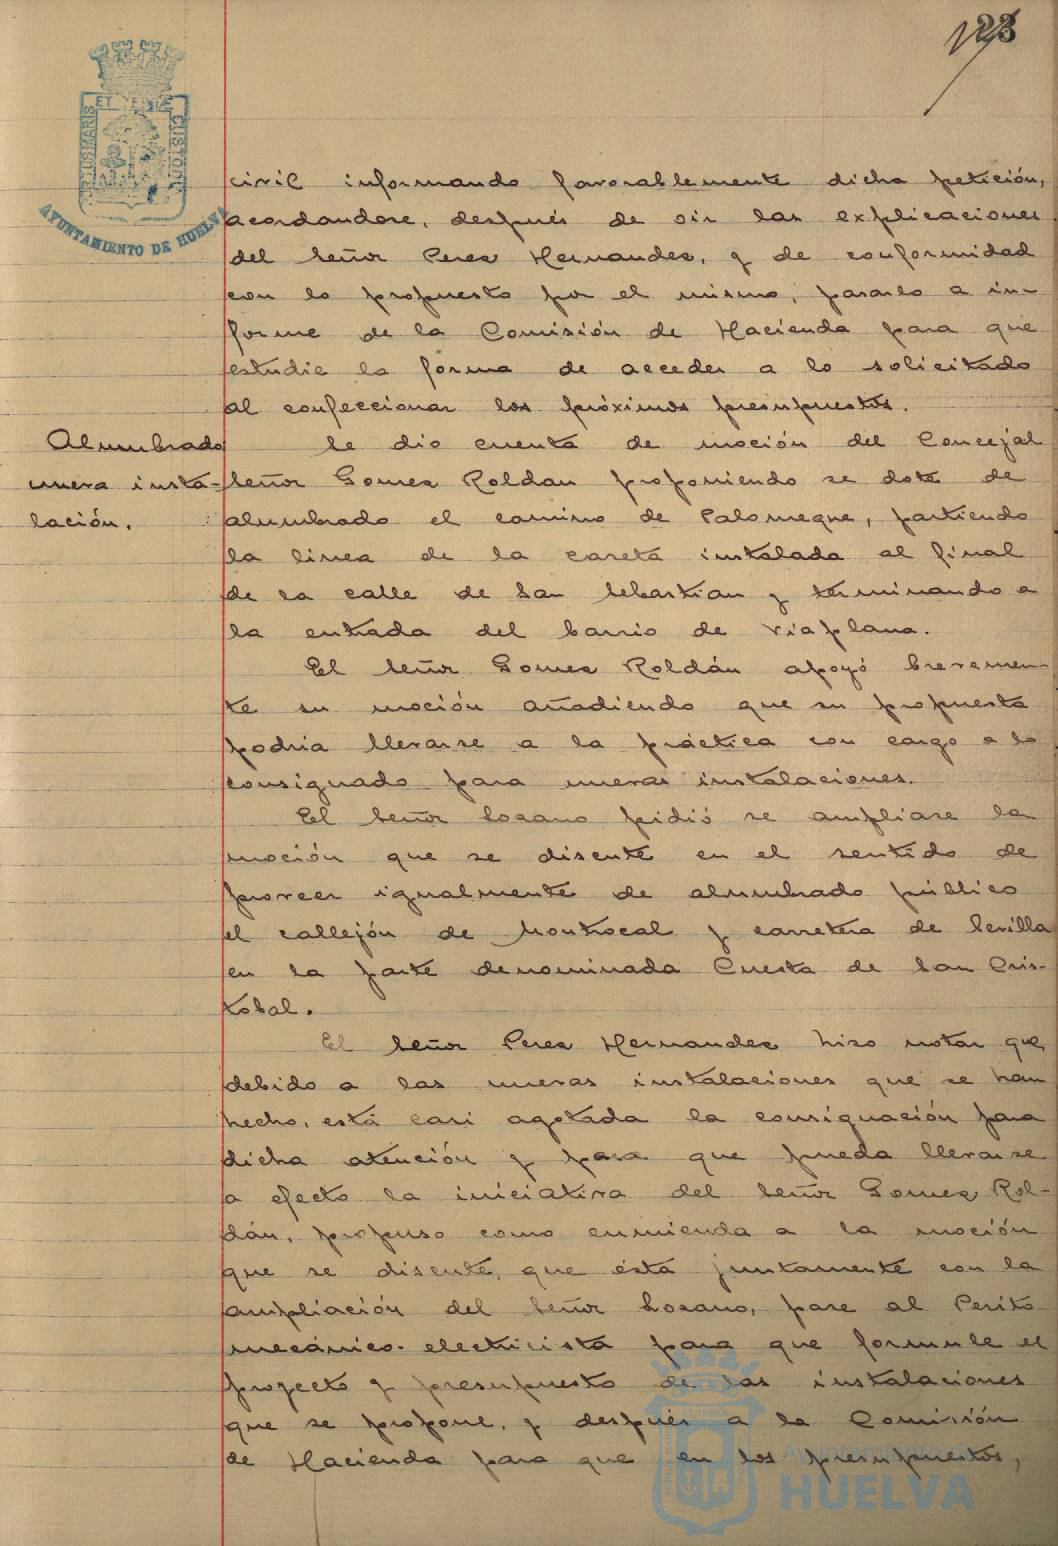 23
PORTUS MARIS ET TERRÆ CUSTODIA
AYUNTAMIENTO DE HUELVA
civil informando favorablemente dicha petición,
acordandose, después de oir las explicaciones
del Señor Perez Hernandez, y de conformidad
con lo propuesto por el mismo, pasarlo a in-
forme de la Comisión de Hacienda para que
estudie la forma de acceder a lo solicitado
al confeccionar los próximos presupuestos.
Alumbrado
nueva insta-
lación.
Se dio cuenta de moción del Concejal
Señor Gomez Roldan proponiendo se dote de
alumbrado el camino de Palomeque, partiendo
la linea de la caseta instalada al final
de la calle de San Sebastian y terminando a
la entrada del barrio de Viaplana.
El Señor Gomez Roldán apoyó brevemen-
te su moción añadiendo que su propuesta
podria llevarse a la práctica con cargo a lo
consignado para nuevas instalaciones.
El Señor Lozano pidió se ampliase la
moción que se discute en el sentido de
proveer igualmente de alumbrado público
el callejón de Montrocal y carretera de Sevilla
en la parte denominada Cuesta de San Cris-
tobal.
El Señor Perez Hernandez hizo notar que,
debido a las nuevas instalaciones que se han
hecho, está casi agotada la consignación para
dicha atención y para que pueda llevarse
a efecto la iniciativa del Señor Gomez Rol-
dán, propuso como enmienda a la moción
que se discute, que ésta juntamente con la
ampliación del Señor Lozano, pase al Perito
mecánico-electricista para que formule el
proyecto y presupuesto de las instalaciones
que se propone, y después a la Comisión
de Hacienda para que en los presupuestos,
Ayuntamiento de
HUELVA